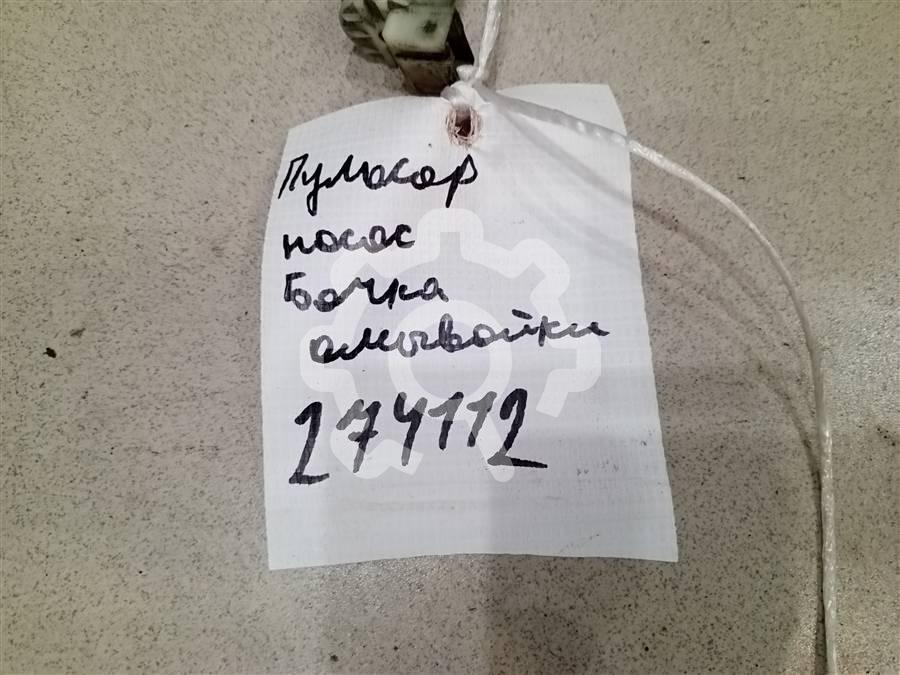 Пульсар
насос
Бачка
омывайки
274112